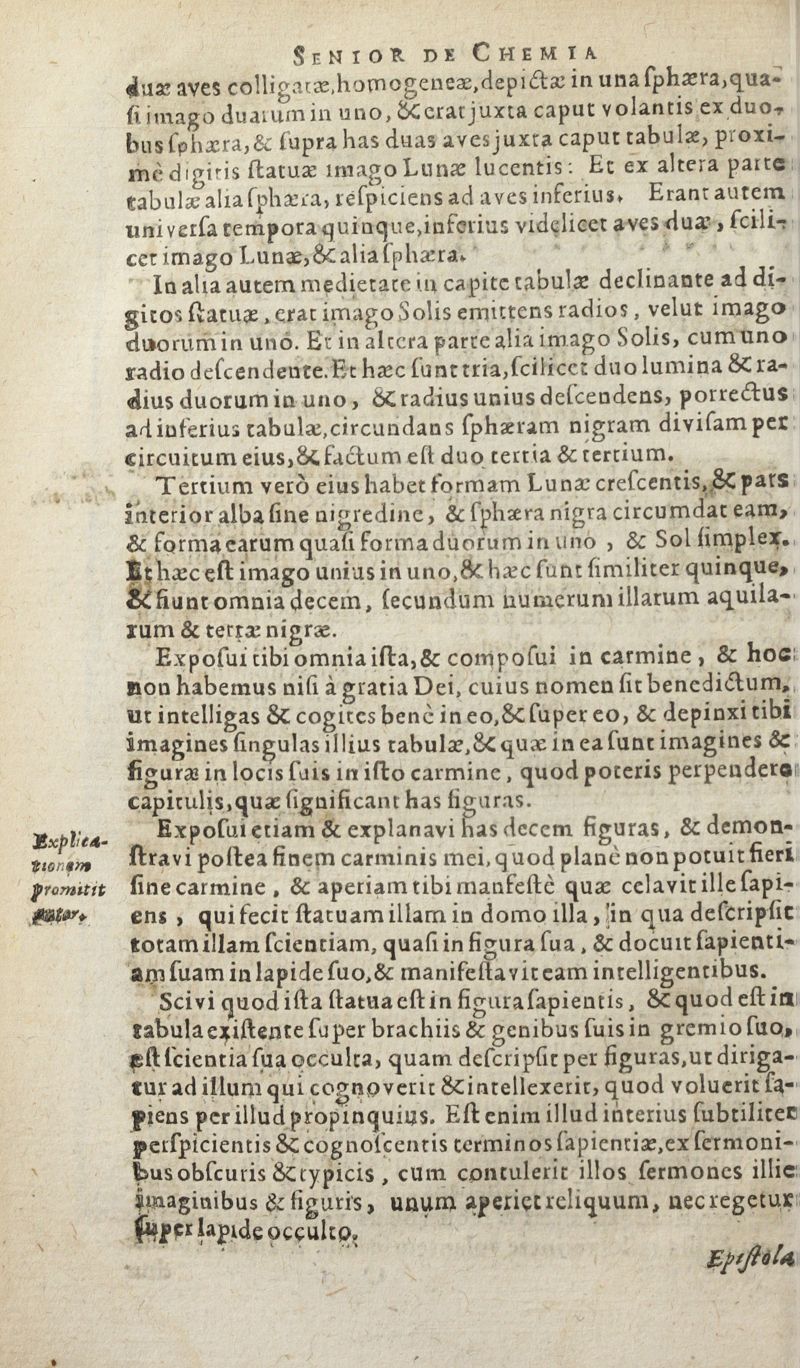 SENIOR DE CHEMIA
duæ aves colligatæ,homogeneæ,depictæ in una ſphæra,qua-
ſi imago duarum in uno, & erat juxta caput volantis ex duo-
bus ſphæra,& ſupra has duas aves juxta caput tabulæ, proxi-
mè digitis ſtatuæ imago Lunæ lucentis: Et ex altera parte
tabulæ alia ſphæra, reſpiciens ad aves inferius. Erant autem
univerſa tempora quinque,inferius videlicet aves duæ, ſcili-
cet imago Lunæ,& alia ſphæra.
In alia autem medietate in capite tabulæ declinante ad di-
gitos ſtatuæ, erat imago Solis emittens radios, velut imago
duorum in unó. Et in altera parte alia imago Solis, cum uno
radio deſcendente. Et hæc ſunt tria,ſcilicet duo lumina & ra-
dius duorum in uno, & radius unius deſcendens, porrectus
ad inferius tabulæ,circundans ſphæram nigram diviſam per
circuitum eius,& factum eſt duo tertia & tertium.
Tertium verò eius habet formam Lunæ creſcentis, & pars
interior alba ſine nigredine, & ſphæra nigra circumdat eam,
& forma earum quaſi forma duorum in uno, & Sol ſimplex.
Et hæc eſt imago unius in uno,& hæc ſunt ſimiliter quinque,
& fiunt omnia decem, ſecundum numerum illarum aquila-
rum & terræ nigræ.
Expoſui tibi omnia iſta,& compoſui in carmine, & hoc
non habemus niſi à gratia Dei, cuius nomen ſit benedictum,
ut intelligas & cogites benè in eo,& ſuper eo, & depinxi tibi
imagines ſingulas illius tabulæ,& quæ in ea ſunt imagines &
figuræ in locis ſuis in iſto carmine, quod poteris perpendere
capitulis,quæ ſignificant has figuras.
Explica-
tionem
promittit
autor.
Expoſui etiam & explanavi has decem figuras, & demon-
ſtravi poſtea finem carminis mei, quod planè non potuit fieri
ſine carmine, & aperiam tibi manfeſtè quæ celavit ille ſapi-
ens, qui fecit ſtatuam illam in domo illa, in qua deſcripſit
totam illam ſcientiam, quaſi in figura ſua, & docuit ſapienti-
am ſuam in lapide ſuo,& manifeſtavit eam intelligentibus.
Scivi quod iſta ſtatua eſt in figura ſapientis, & quod eſt in
tabula exiſtente ſuper brachiis & genibus ſuis in gremio ſuo,
eſt ſcientia ſua occulta, quam deſcripſit per figuras,ut diriga-
tur ad illum qui cognoverit & intellexerit, quod voluerit ſa-
piens per illud propinquius. Eſt enim illud interius ſubtiliter
perſpicientis & cognoſcentis terminos ſapientiæ,ex ſermoni-
bus obſcuris & typicis, cum contulerit illos ſermones illic
imaginibus & figuris, unum aperiet reliquum, nec regetur
ſuper lapide occulto.
Epiſtola